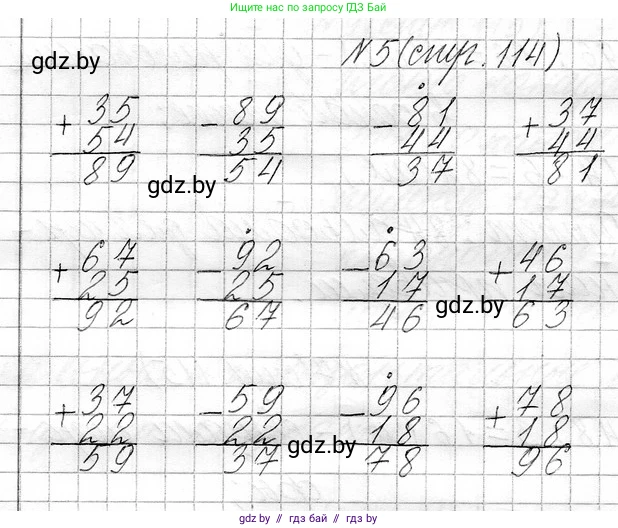 Ищите нас в поисковиках по запросу ГДЗ Бай
gdz.by
N 5 (стр. 114)
+ 35 - 89 - 81 + 37
54 35 44 44
89 54 37 81
gdz.by
+ 67 - 92 - 63 + 46
25 25 17 17
92 67 46 63
gdz.by
+ 37 - 59 - 96 + 78
22 22 18 18
59 37 78 96
gdz.by
gdz.by // гдз бай // gdz.by